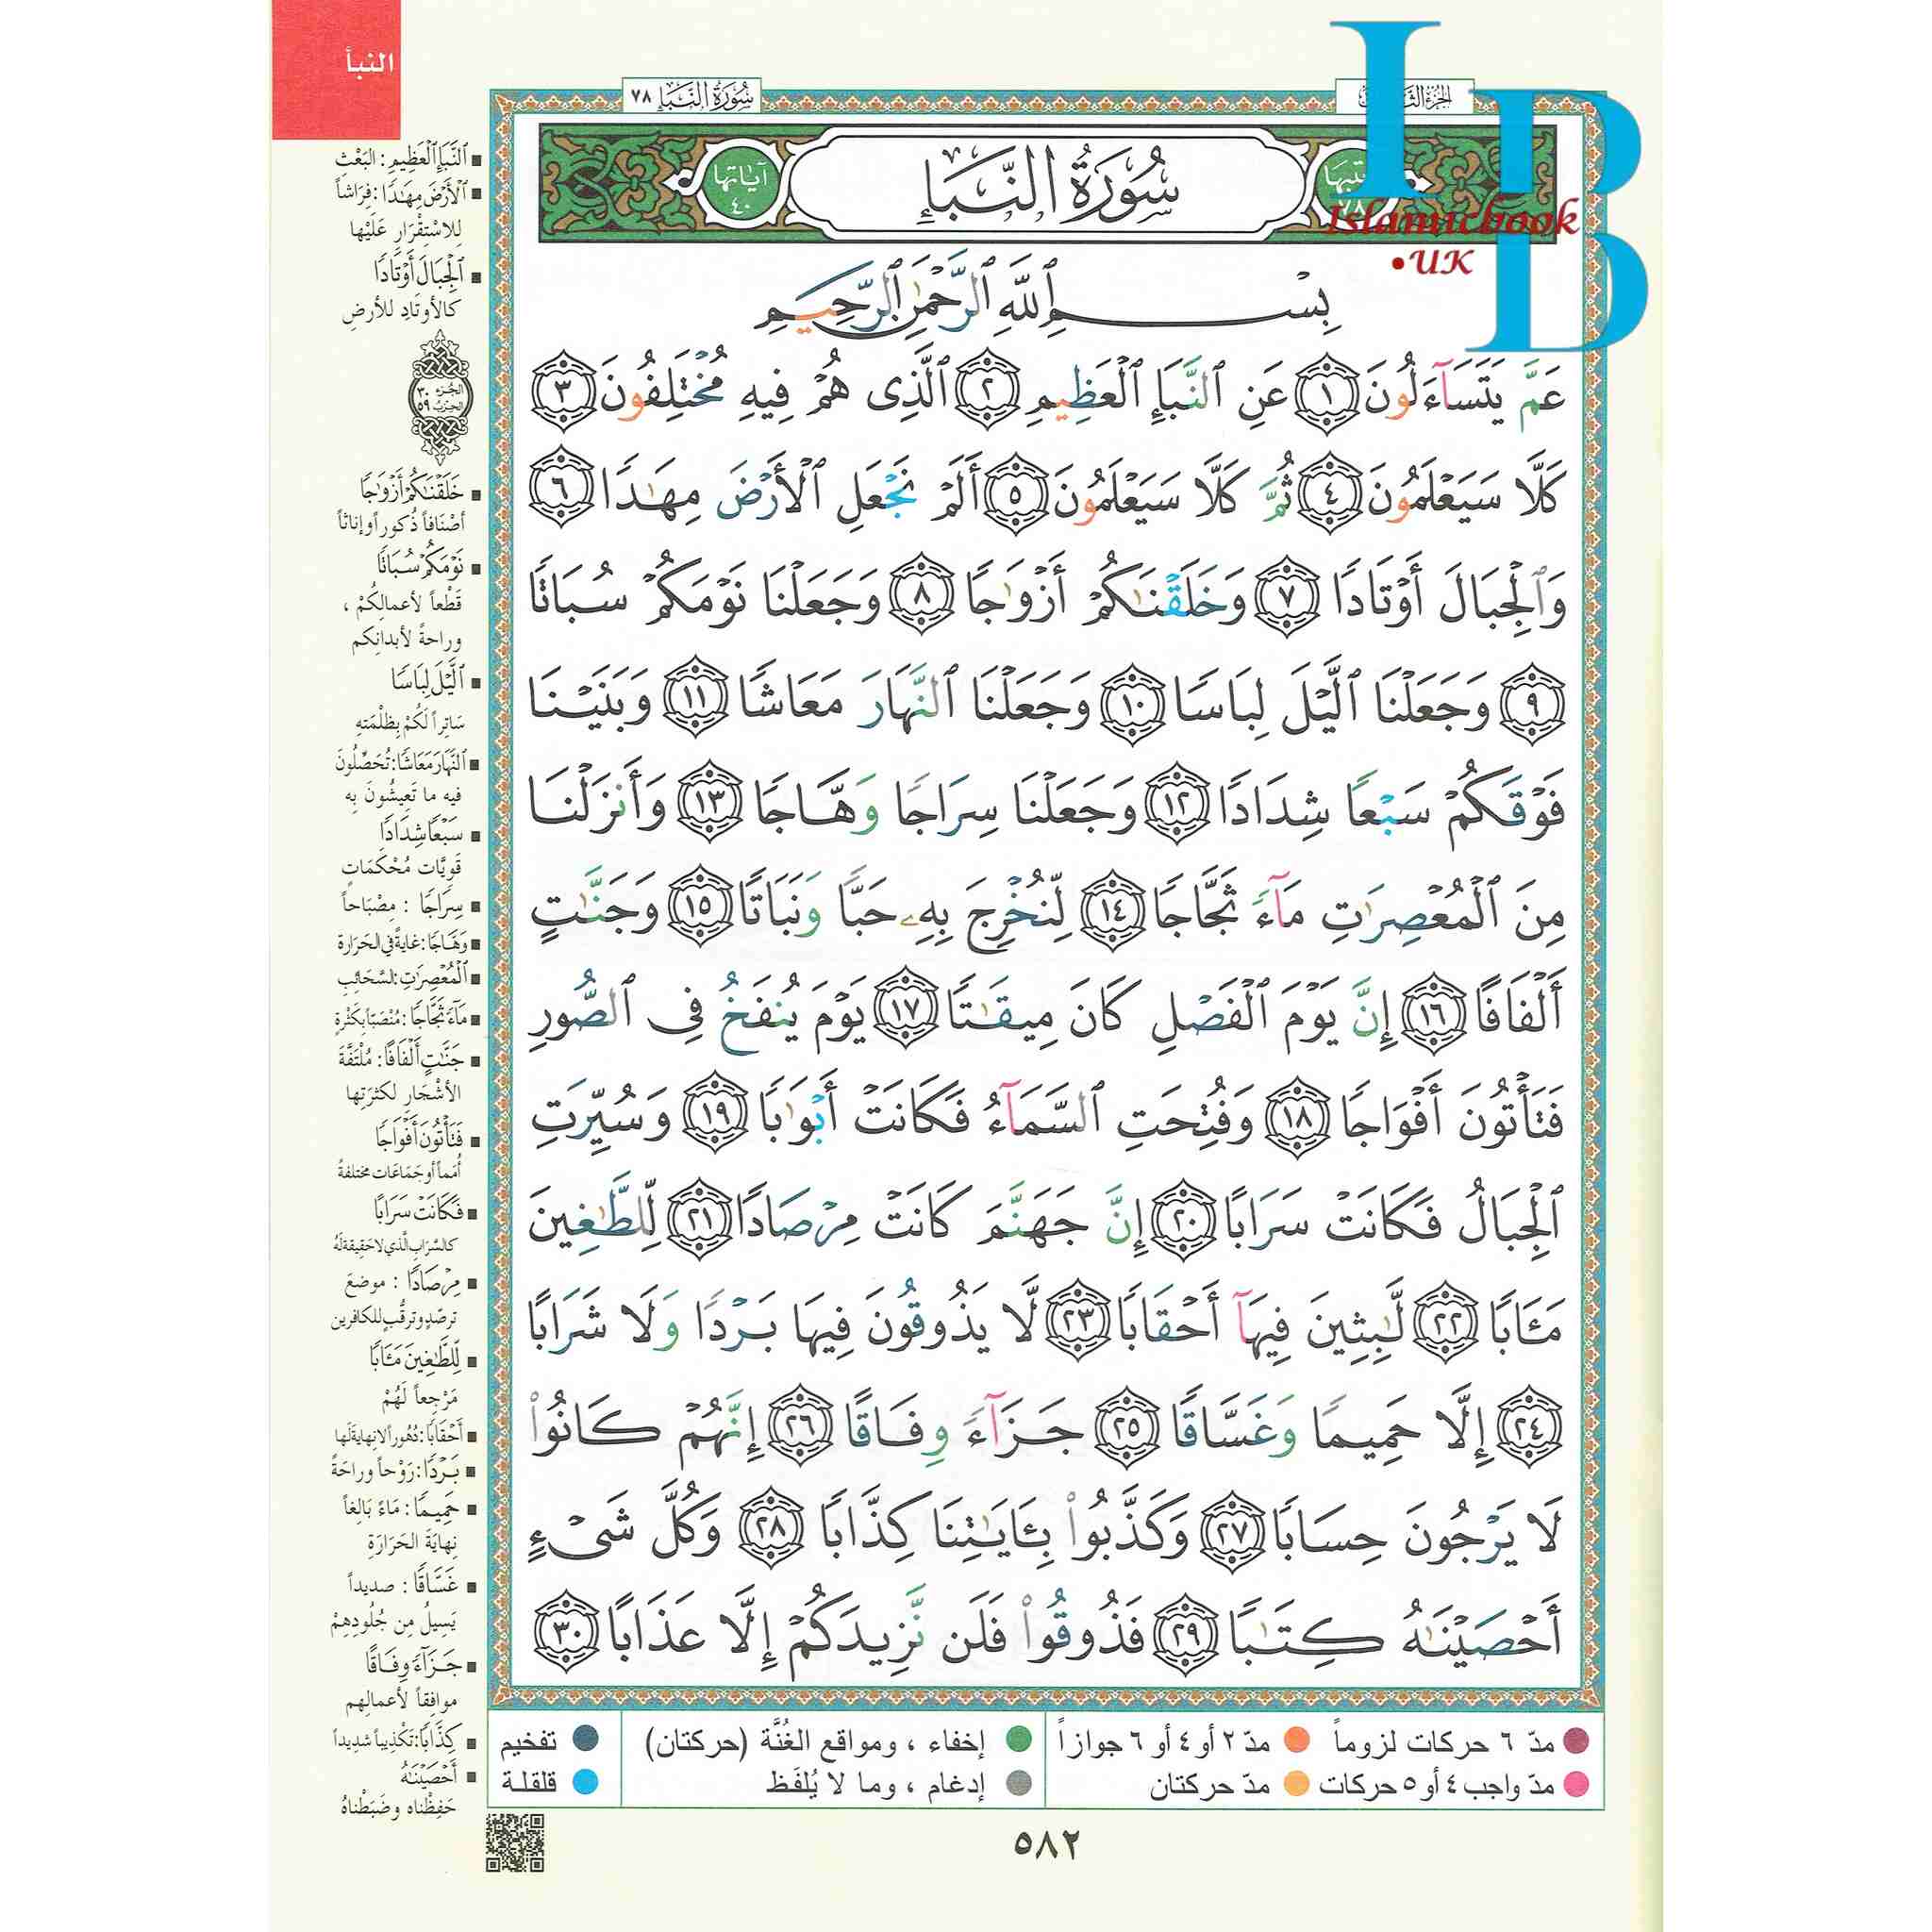 النبأ
الجزء
سُورَةُ النَّبَإِ ٧٨
سُورَةُ النَّبَإِ
آيَاتُهَا ٤٠
Islamicbook
•UK
IB
بِسْمِ ٱللَّهِ ٱلرَّحْمَٰنِ ٱلرَّحِيمِ
عَمَّ يَتَسَآءَلُونَ ١ عَنِ ٱلنَّبَإِ ٱلْعَظِيمِ ٢ ٱلَّذِى هُمْ فِيهِ مُخْتَلِفُونَ ٣
كَلَّا سَيَعْلَمُونَ ٤ ثُمَّ كَلَّا سَيَعْلَمُونَ ٥ أَلَمْ نَجْعَلِ ٱلْأَرْضَ مِهَٰدًا ٦
وَٱلْجِبَالَ أَوْتَادًا ٧ وَخَلَقْنَٰكُمْ أَزْوَٰجًا ٨ وَجَعَلْنَا نَوْمَكُمْ سُبَاتًا
٩ وَجَعَلْنَا ٱلَّيْلَ لِبَاسًا ١٠ وَجَعَلْنَا ٱلنَّهَارَ مَعَاشًا ١١ وَبَنَيْنَا
فَوْقَكُمْ سَبْعًا شِدَادًا ١٢ وَجَعَلْنَا سِرَاجًا وَهَّاجًا ١٣ وَأَنزَلْنَا
مِنَ ٱلْمُعْصِرَٰتِ مَآءً ثَجَّاجًا ١٤ لِّنُخْرِجَ بِهِۦ حَبًّا وَنَبَاتًا ١٥ وَجَنَّٰتٍ
أَلْفَافًا ١٦ إِنَّ يَوْمَ ٱلْفَصْلِ كَانَ مِيقَٰتًا ١٧ يَوْمَ يُنفَخُ فِى ٱلصُّورِ
فَتَأْتُونَ أَفْوَاجًا ١٨ وَفُتِحَتِ ٱلسَّمَآءُ فَكَانَتْ أَبْوَٰبًا ١٩ وَسُيِّرَتِ
ٱلْجِبَالُ فَكَانَتْ سَرَابًا ٢٠ إِنَّ جَهَنَّمَ كَانَتْ مِرْصَادًا ٢١ لِّلطَّٰغِينَ
مَـَٔابًا ٢٢ لَّٰبِثِينَ فِيهَآ أَحْقَابًا ٢٣ لَّا يَذُوقُونَ فِيهَا بَرْدًا وَلَا شَرَابًا
٢٤ إِلَّا حَمِيمًا وَغَسَّاقًا ٢٥ جَزَآءً وِفَاقًا ٢٦ إِنَّهُمْ كَانُوا۟
لَا يَرْجُونَ حِسَابًا ٢٧ وَكَذَّبُوا۟ بِـَٔايَٰتِنَا كِذَّابًا ٢٨ وَكُلَّ شَىْءٍ
أَحْصَيْنَٰهُ كِتَٰبًا ٢٩ فَذُوقُوا۟ فَلَن نَّزِيدَكُمْ إِلَّا عَذَابًا ٣٠
ٱلنَّبَإِ ٱلْعَظِيمِ : البَعْثِ
ٱلْأَرْضَ مِهَٰدًا : فِرَاشاً
لِلاسْتِقْرَارِ عَلَيْها
ٱلْجِبَالَ أَوْتَادًا
كالأوتَادِ للأرضِ
الجُزء ٣٠
الحِزب ٥٩
خَلَقْنَٰكُمْ أَزْوَٰجًا
أصْنَافاً ذُكوراً وإناثاً
نَوْمَكُمْ سُبَاتًا
قَطْعاً لأعمالِكُمْ ،
وراحةً لأبدانِكم
ٱلَّيْلَ لِبَاسًا
سَاتِراً لَكُمْ بِظُلْمَتِهِ
ٱلنَّهَارَ مَعَاشًا : تُحَصِّلُونَ
فيه ما تَعِيشُونَ بِهِ
سَبْعًا شِدَادًا
قَوِيَّات مُحْكَمَاتٍ
سِرَاجًا : مِصْبَاحاً
وَهَّاجًا : غايةً في الحَرَارة
ٱلْمُعْصِرَٰتِ : السَّحَائبِ
مَآءً ثَجَّاجًا : مُنْصَبّاً بكَثْرةٍ
جَنَّٰتٍ أَلْفَافًا : مُلْتَفَّةَ
الأشْجَارِ لكثرَتِها
فَتَأْتُونَ أَفْوَاجًا
أُمَماً أو جَمَاعَات مختلفةً
فَكَانَتْ سَرَابًا
كالسَّرَابِ الَّذي لا حَقِيقةَ لَهُ
مِرْصَادًا : موضعَ
ترصّدٍ وترقُّبٍ للكافرين
لِّلطَّٰغِينَ مَـَٔابًا
مَرْجِعاً لَهُمْ
أَحْقَابًا : دُهُوراً لا نِهايةَ لَها
بَرْدًا : رَوْحاً وراحَةً
حَمِيمًا : مَاءً بَالِغاً
نِهايَةَ الحَرَارَةِ
غَسَّاقًا : صديداً
يَسِيلُ مِن جُلُودِهِمْ
جَزَآءً وِفَاقًا
موافِقاً لأعمالِهم
كِذَّابًا : تَكْذِيباً شديداً
أَحْصَيْنَٰهُ
حَفِظْناه وضَبَطْناهُ
مدّ ٦ حركات لزوماً
مدّ ٢ أو ٤ أو ٦ جوازاً
إخفاء ، ومواقع الغُنَّة (حركتان)
تفخيم
مدّ واجب ٤ أو ٥ حركات
مدّ حركتان
إدغام ، وما لا يُلفَظ
قلقلة
٥٨٢